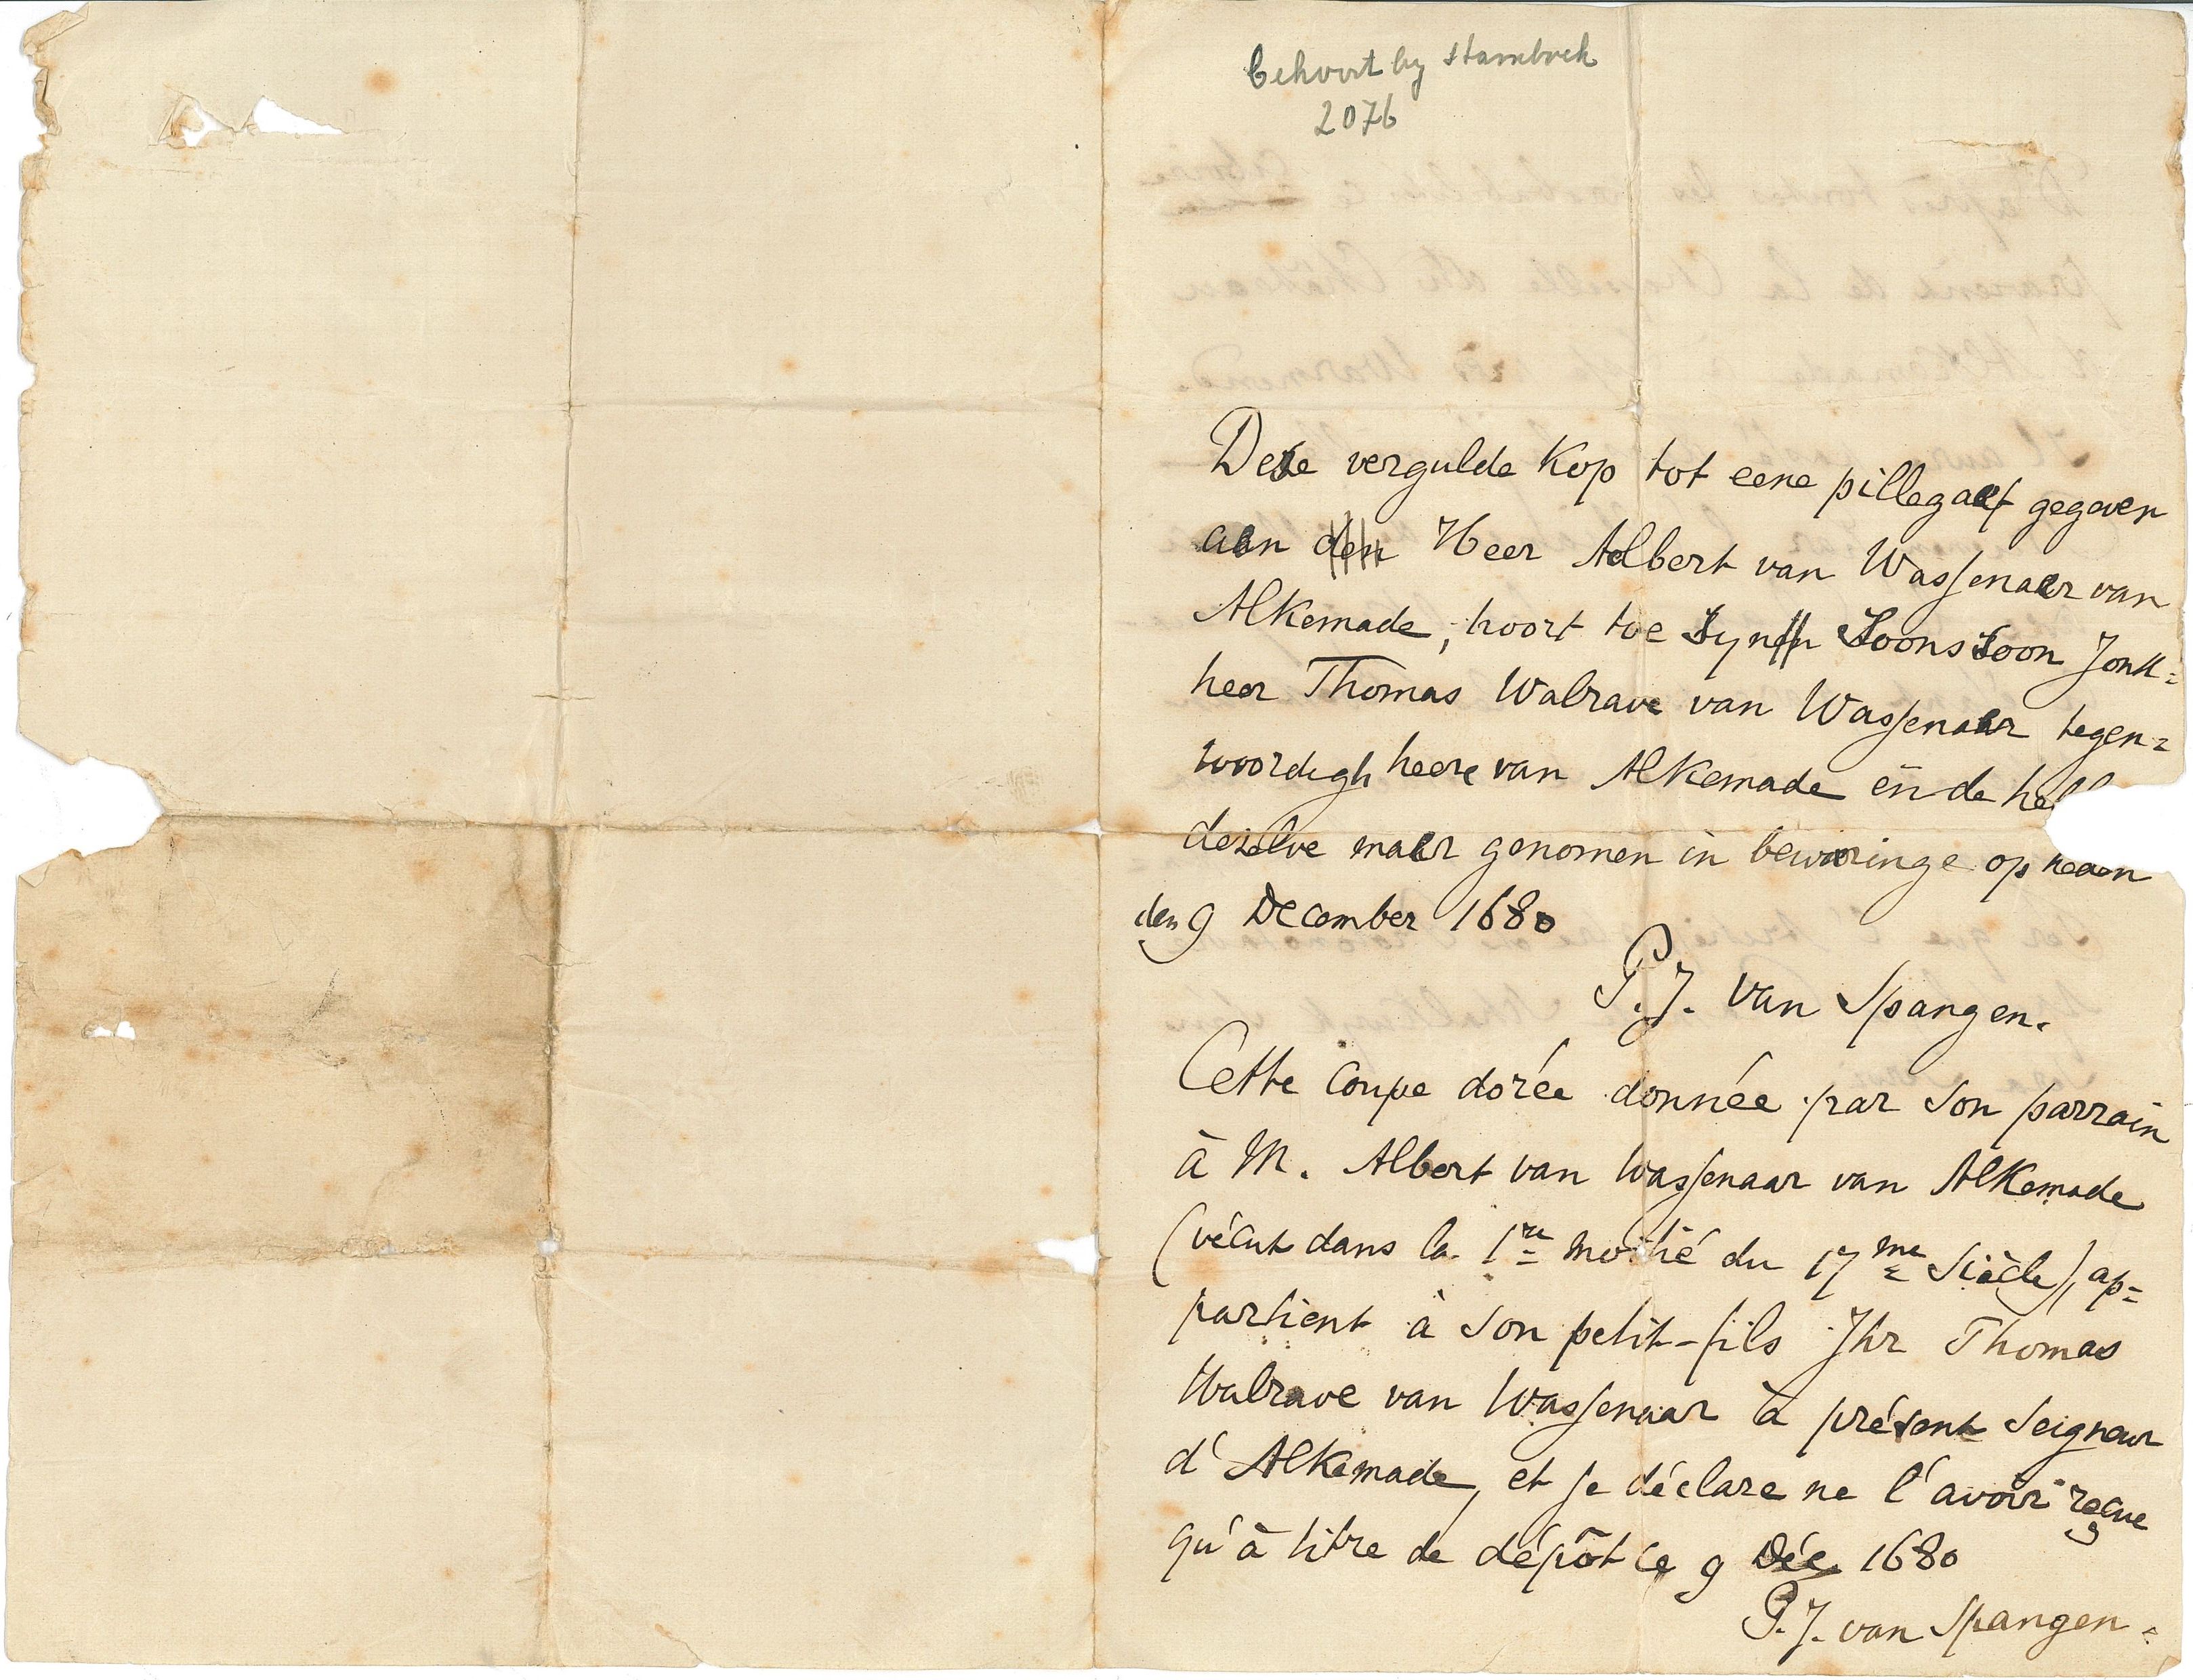 behoort by stamboek
2076
Dese vergulde Kop tot eene pillegaef gegeven
aen Heer Aelbert van Wassenaer van
Alkemade, hoort toe Syn Soons Soon Jonk=
heer Thomas Walrave van Wassenaer tegen=
woordigh heere van Alkemade en de
deselve maer genomen in bewaringe op heden
den 9 December 1680
P.J. van Spangen.
Cette coupe dorée donnée par son parrain
à M. Albert van Wassenaar van Alkemade
(vécut dans la 1re moitié du 17me Siècle), ap=
partient à son petit-fils Jhr Thomas
Walrave van Wassenaar à présent Seigneur
d'Alkemade, et je déclare ne l'avoir reçue
qu'à titre de dépôt ce 9 Déc. 1680
P.J. van Spangen.